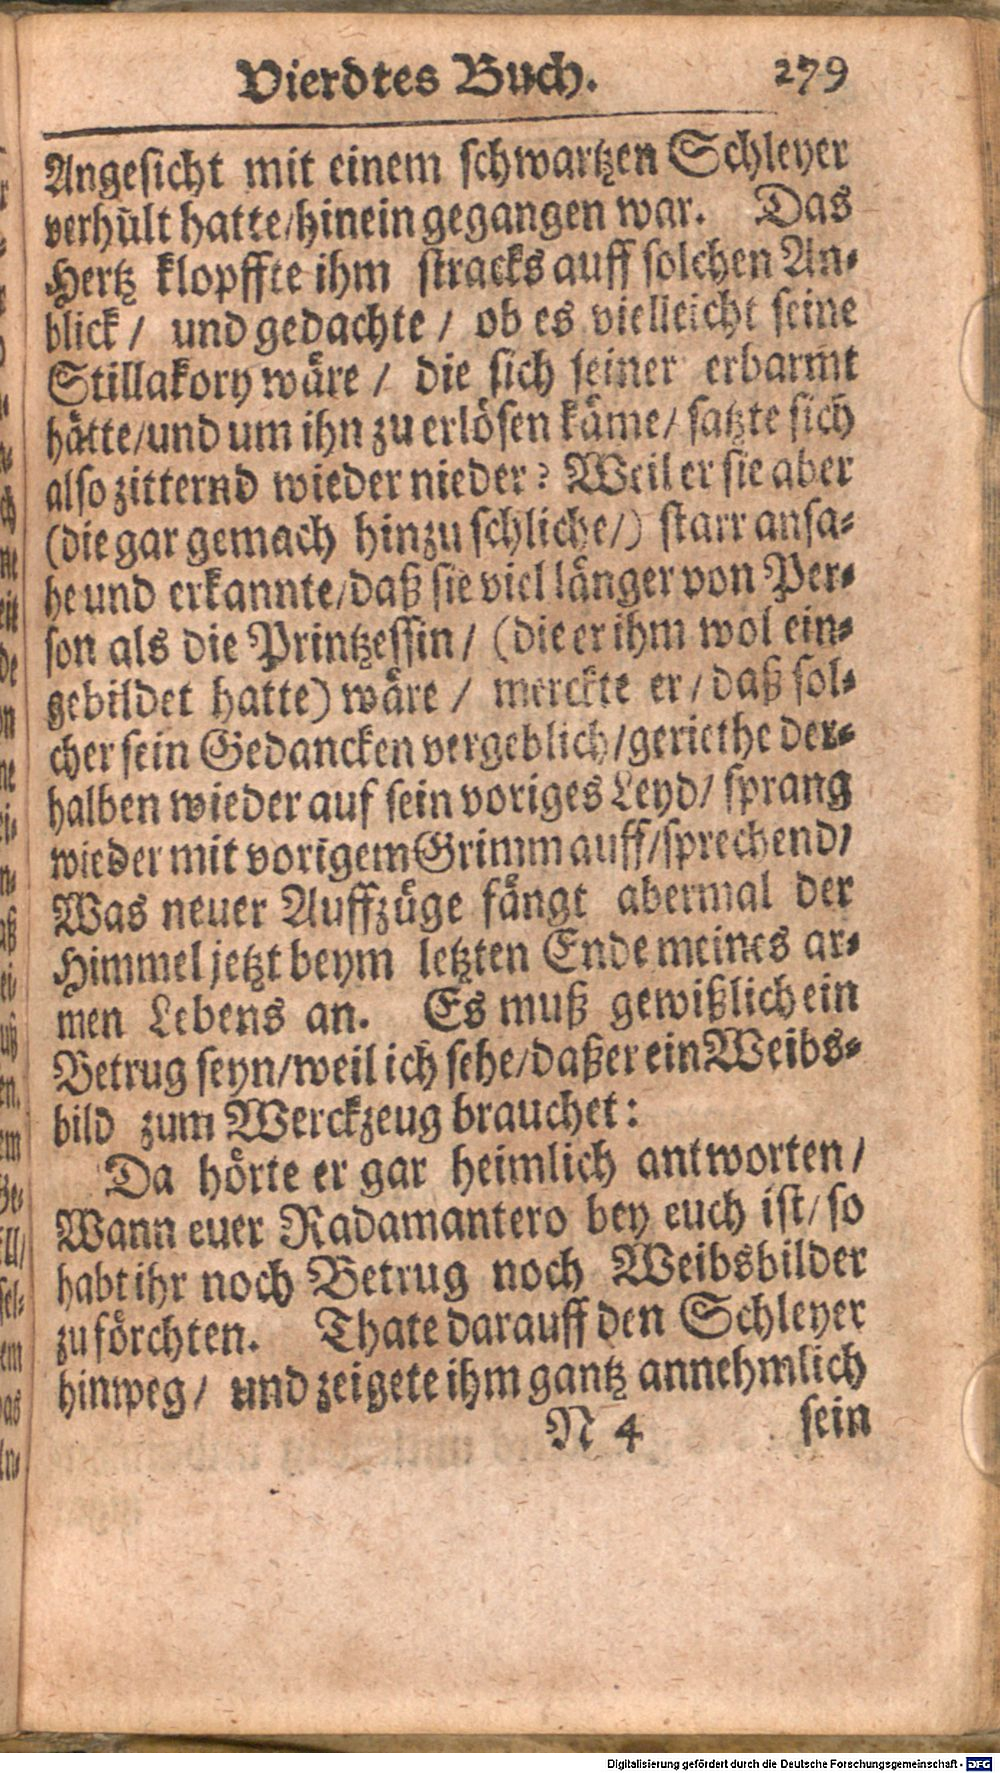 Vierdtes Buch. 279
Angesicht mit einem schwartzen Schleyer
verhült hatte/hinein gegangen war. Das
Hertz klopffte ihm stracks auff solchen An-
blick / und gedachte / ob es vielleicht seine
Stillakory wäre / die sich seiner erbarmt
hätte/und um ihn zu erlösen käme/ satzte sich
also zitternd wieder nieder: Weil er sie aber
(die gar gemach hinzu schliche/) starr ansa-
he und erkannte/daß sie viel länger von Per-
son als die Printzessin / (die er ihm wol ein-
gebildet hatte) wäre / merckte er / daß sol-
cher sein Gedancken vergeblich/geriethe der-
halben wieder auf sein voriges Leyd/ sprang
wieder mit vorigem Grimm auff/sprechend/
Was neuer Auffzüge fängt abermal der
Himmel jetzt beym letzten Ende meines ar-
men Lebens an. Es muß gewißlich ein
Betrug seyn/weil ich sehe/daß er ein Weibs-
bild zum Werckzeug brauchet:
Da hörte er gar heimlich antworten /
Wann euer Radamantero bey euch ist/ so
habt ihr noch Betrug noch Weibsbilder
zu förchten. Thate darauff den Schleyer
hinweg / und zeigete ihm gantz annehmlich
N 4 sein
Digitalisierung gefördert durch die Deutsche Forschungsgemeinschaft - DFG